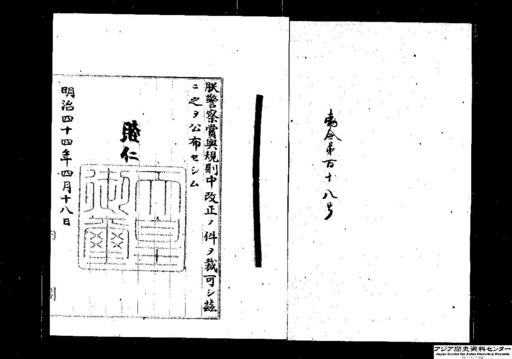 勅令第百十八号
朕警察賞與規則中改正ノ件ヲ裁可シ玆
ニ之ヲ公布セシム
睦仁
天皇
御璽
明治四十四年四月十八日
内
閣
アジア歴史資料センター
Japan Center for Asian Historical Records